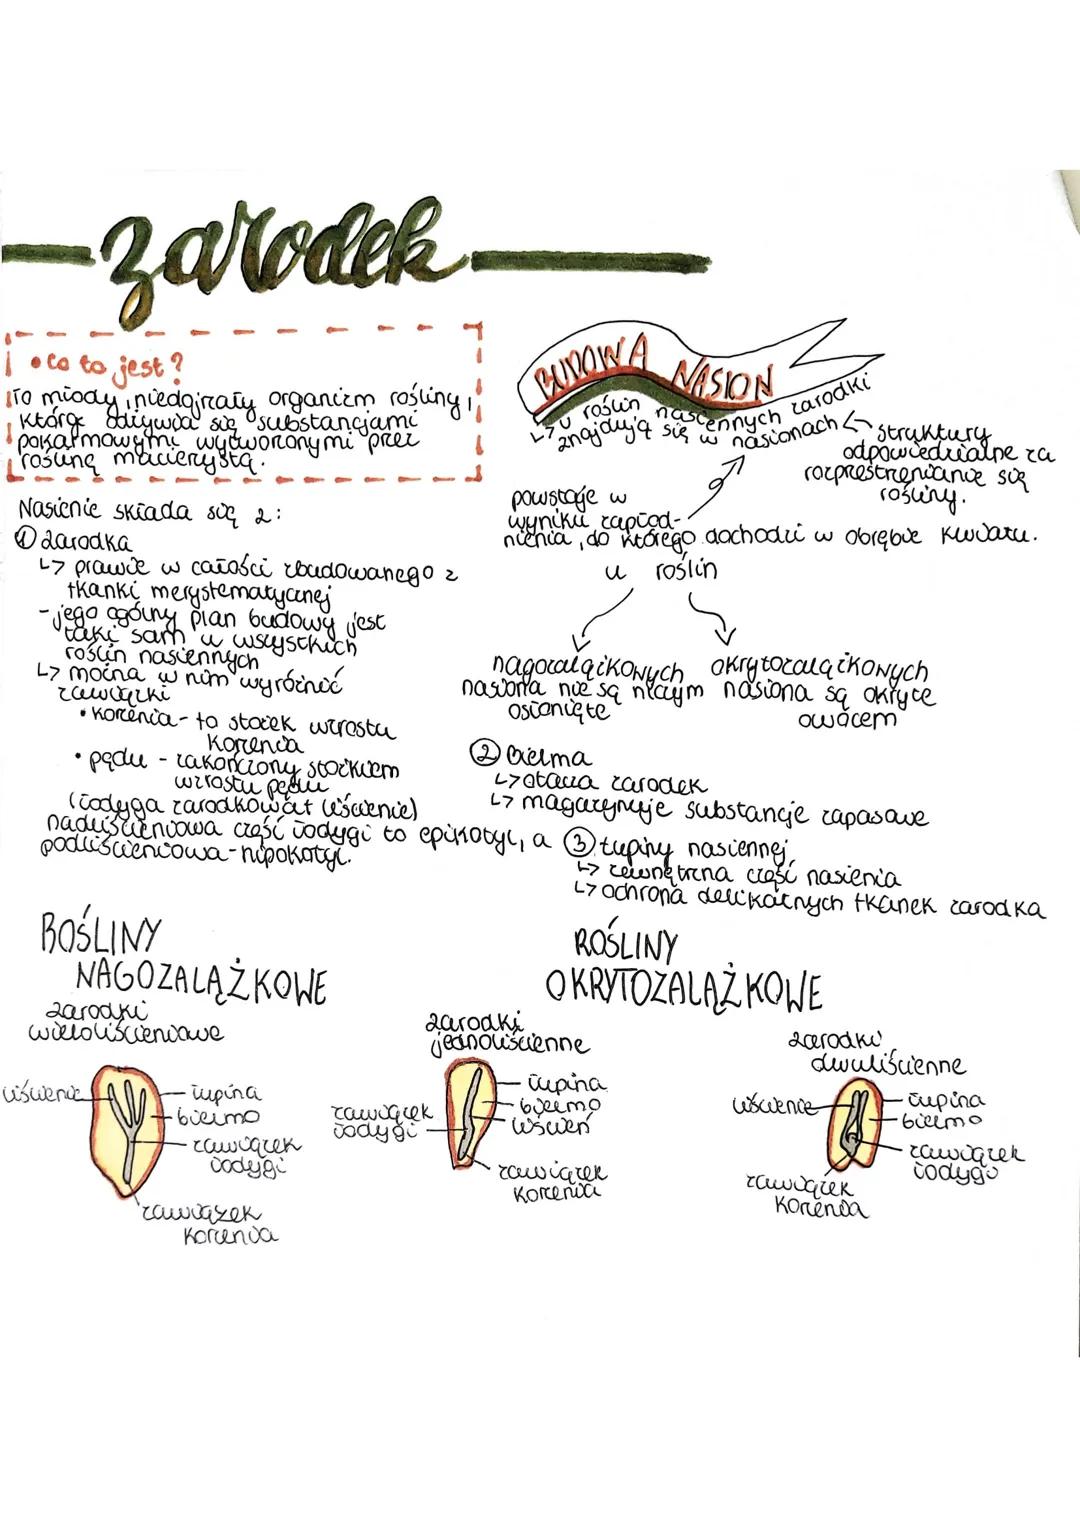 zarodek
• co to jest?
To młody, niedojrzały organizm rośliny,
które odżywia się substancjami
pokarmowymi wytworzonymi przez
roślinę macierzystą.
BUDOWA NASION
↳ u roślin nasiennych zarodki
znajdują się w nasionach ← struktury
odpowiedzialne za
rozprzestrenianie się
rośliny.
powstaje w
wyniku zapłod-
nienia, do którego dochodzi w obrębie kwiatu.
u roślin
nagozalążkowych
nasiona nie są niczym
osłonięte
okrytozalążkowych
nasiona są okryte
owocem
Nasienie składa się z:
① zarodka
↳ prawie w całości zbudowanego z
tkanki merystematycznej
- jego ogólny plan budowy jest
taki sam u wszystkich
roślin nasiennych
↳ można w nim wyróżnić
zawiązki
• korzenia - to stożek wzrostu
korzenia
• pędu - zakończony stożkiem
wzrostu pędu
(łodyga zarodkowa + liścienie)
nadliścieniowa część łodygi to epikotyl, a
podliścieniowa - hipokotyl.
② Bielma
↳ otacza zarodek
↳ magazynuje substancje zapasowe
③ łupiny nasiennej
↳ zewnętrzna część nasienia
↳ ochrona delikatnych tkanek zarodka
ROŚLINY
NAGOZALĄŻKOWE
zarodki
wieloliścieniowe
liścienie
łupina
bielmo
zawiązek
łodygi
zawiązek
korzenia
ROŚLINY
OKRYTOZALĄŻKOWE
zarodki
jednoliścienne
łupina
bielmo
liścień
zawiązek
łodygi
zawiązek
korzenia
zarodki
dwuliścienne
liścienie
łupina
bielmo
zawiązek
łodygi
zawiązek
korzenia